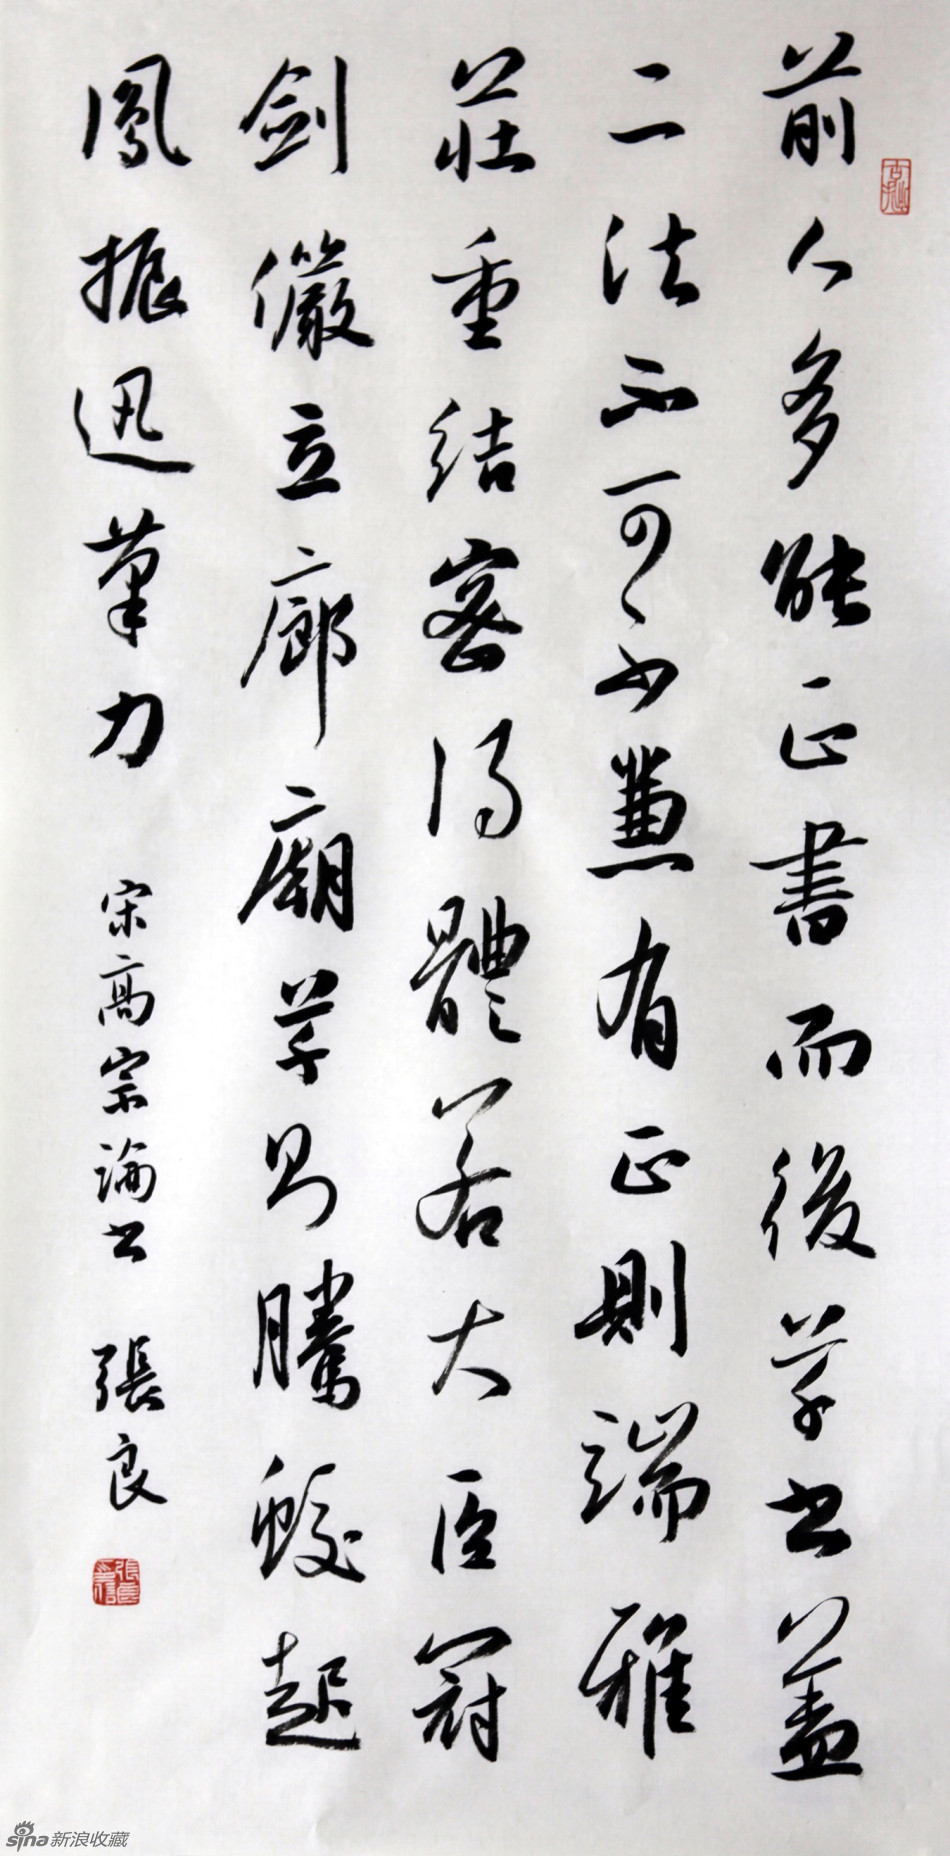 前人多能正書而後草书蓋
二法不可不兼有正則端雅
莊重結密得體若大臣冠
劍儼立廊廟草则騰蛟起
鳳振迅筆力
宋高宗論书 張良
sina新浪收藏